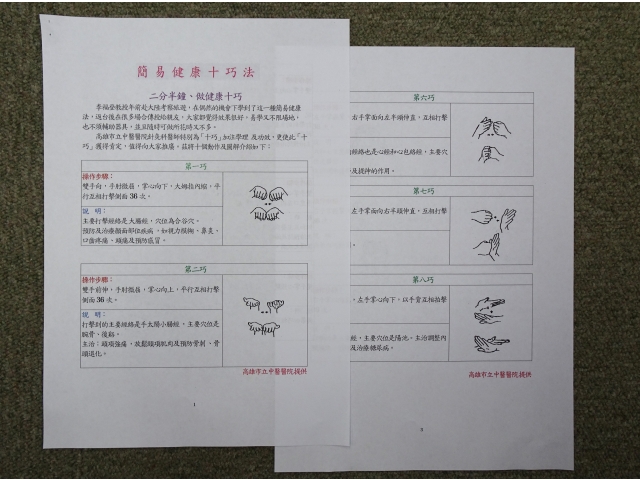 簡易健康十巧法
二分半鐘、做健康十巧
李福登教授年前赴大陸考察旅遊，在偶然的機會下學到了這一種簡易健康
法，返台後在很多場合傳授給親友，大家都覺得效果很好，易學又不限場地，
也不須輔助器具，並且隨時可做所花時又不多。
高雄市立中醫醫院針灸科醫師特別為「十巧」加注學理 及功效，更使此「十
巧」獲得肯定，值得向大家推廣，茲將十個動作及圖解介紹如下：
第一巧
操作步驟：
雙手向，手肘微抬，掌心向下，大姆指內縮，平
行互相打擊側面 36 次。
說 明：
主要打擊經絡是大腸經，穴位為合谷穴。
預防及治療顏面部位疾病，如視力模糊，鼻炎，
口齒疼痛、頭痛及預防感冒。
第二巧
操作步驟：
雙手前伸，手肘微抬，掌心向上，平行互相打擊
側面 36 次。
說 明：
打擊到的主要經絡是手太陽小腸經，主要穴位是
腕骨、後谿。
主治：頭項強痛，放鬆頸項肌肉及預防骨刺、骨
頭退化。
高雄市立中醫醫院提供
1
第六巧
右手掌面向左手頭伸直，互相打擊
經絡也是心經和心包絡經，主要穴
及提神的作用。
第七巧
左手掌面向右手頭伸直，互相打擊
第八巧
，左手掌心向下，以手背互相拍擊
經，主要穴位是陽池。主治調整內
及治療糖尿病。
高雄市立中醫醫院提供
3